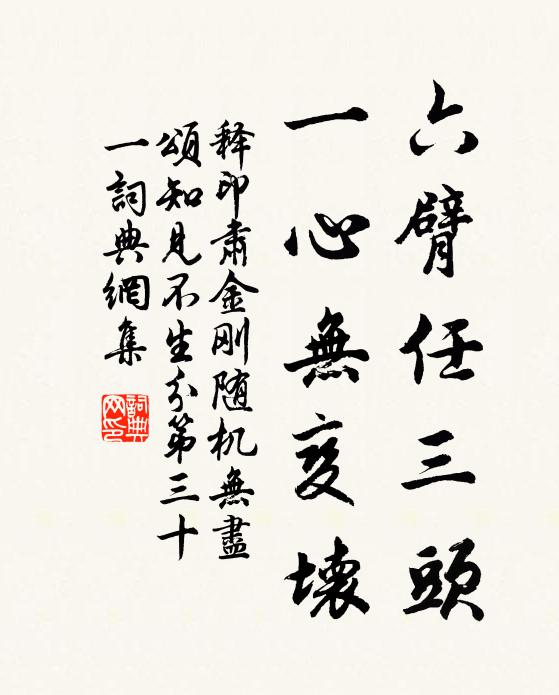 六臂任三頭
一心無变壞
释印肃金刚随机無盡
頌知見不生分第三十
一詞典網集
詞典
网印